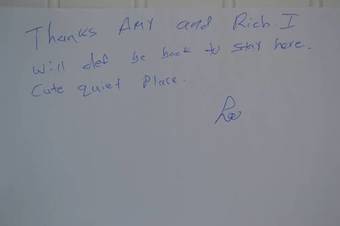 Thanks Amy and Rich. I
will def be back to stay here.
Cute quiet place.